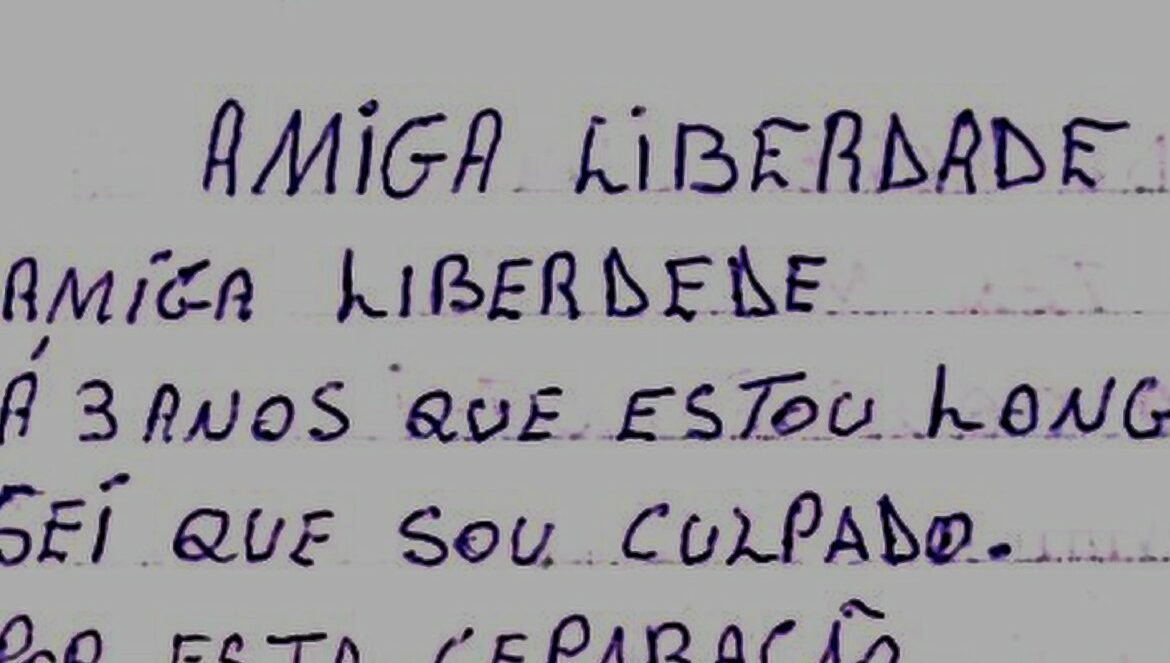 AMIGA LIBERDADE
AMIGA LIBERDEDE
Á 3 ANOS QUE ESTOU LONG
SEI QUE SOU CULPADO.
POR ESTA CEPARAÇÃO